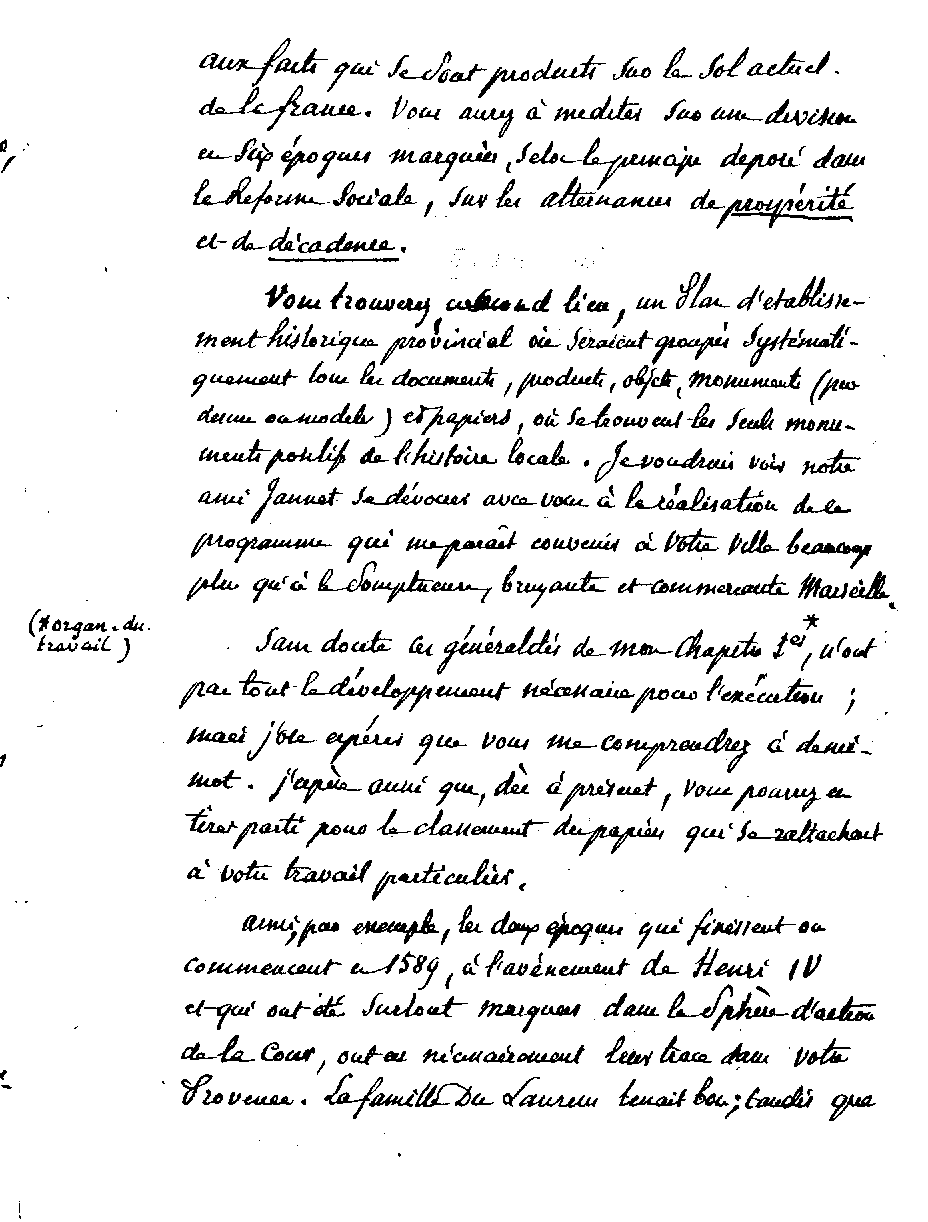 aux faits qui se sont produits sur le sol actuel.
de la france. Vous aurez à mediter sur une division
en six époques marquées, selon le principe déposé dans
la Reforme Sociale, sur les alternances de prospérité
et de décadence.
Vous trouverez, en second lieu, un Plan d'établisse-
ment historique provincial où seraient groupés systémati-
quement tous les documents, produits, objets, monuments (par
dessin ou modèle) et papiers, où se trouvent les seuls monu-
ments positifs de l'histoire locale. Je voudrais voir notre
ami Jannet se dévouer avec vous à la réalisation de ce
programme qui me paraît convenir à votre ville beaucoup
plus qu'à la somptueuse, bruyante et commercante Marseille.
(* organ. du.
travail)
Sans doute les généralités de mon Chapitre Ier*, n'ont
pas tout le développement nécessaire pour l'exécution ;
mais j'ose espérer que vous me comprendrez à demi-
mot. j'espère aussi que, dès à présent, vous pourrez en
tirer parti pour le classement des papiers qui se rattachent
à votre travail particulier.
ainsi, par exemple, les deux époques qui finissent ou
commencent en 1589, à l'avènement de Henri IV
et qui ont été surtout marquées dans la sphère d'action
de la Cour, ont eu nécessairement leur trace dans votre
Provence. La famille Du Laurens tenait bon; tandis que